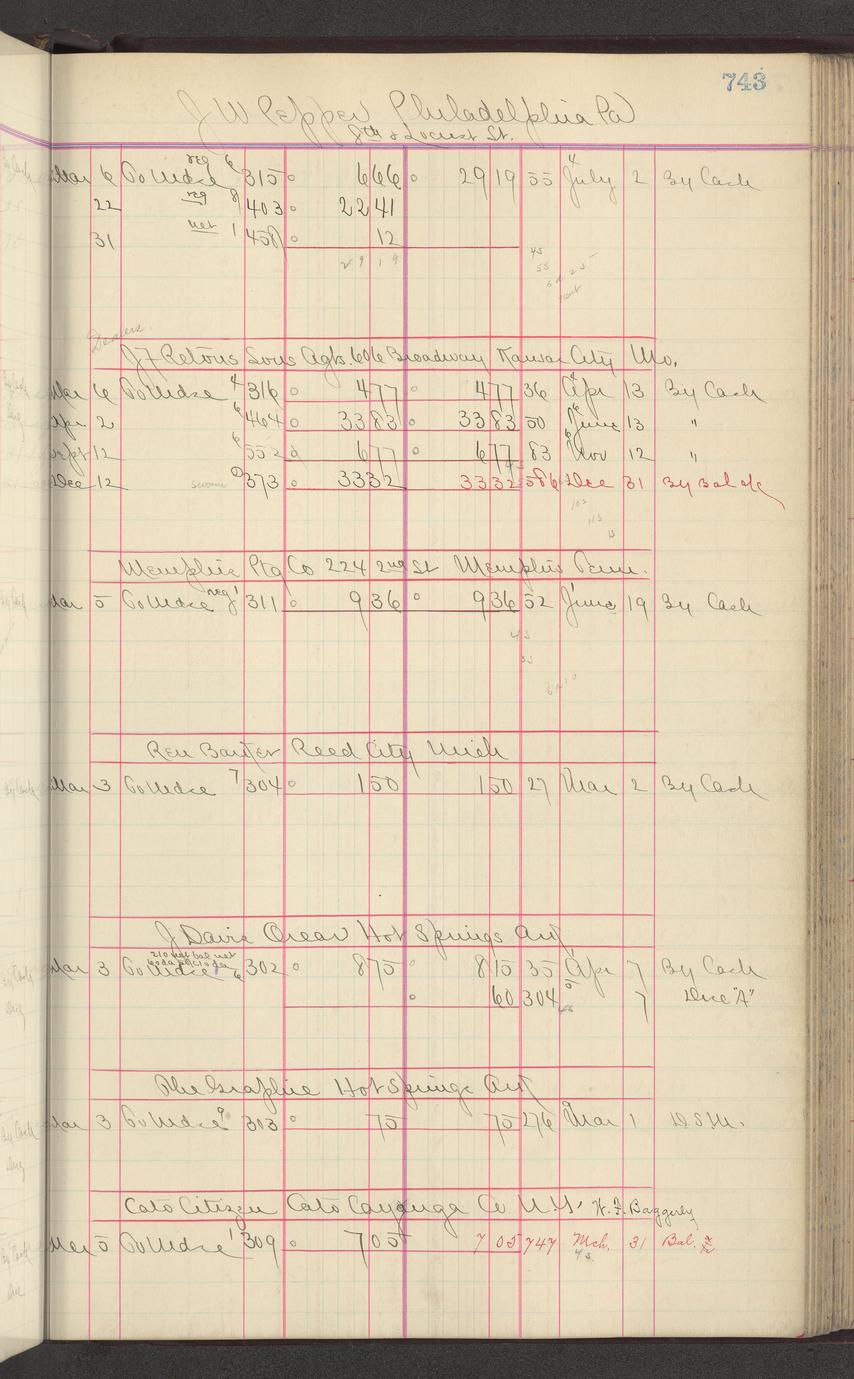 743
J W Pepper Philadelphia Pa
8th & Locust St.
Mar 6 To Mdse reg 6 315 0 6 66 0 29 19 55 July 2 By Cash
22 reg 8 403 0 22 41
31 net 1 458 0 12
29 19
45
55
Dealers
Sons Agts. 606 Broadway Kansas City Mo,
Mar 6 To Mdse 4 316 0 4 77 0 4 77 36 Apr 13 By Cash
Apr 2 6 464 0 33 83 0 33 83 50 June 13 "
Sept 12 6 552 0 6 77 0 6 77 83 Nov 12 "
Dec 12 373 0 33 32 33 32 586 Dec 31 By Bal a/c
Memphis Ptg Co 224 2nd St Memphis Tenn.
Mar 5 To Mdse reg 1 311 0 9 36 0 9 36 52 June 19 By Cash
45
55
Reed City Mich
Mar 3 To Mdse 7 304 0 1 50 1 50 27 Mar 2 By Cash
J Davis Orear Hot Springs Ark
Mar 3 To Mdse 6 302 0 8 75 0 8 15 35 Apr 7 By Cash
0 60 304 7 Disc "A"
The Graphic Hot Springs Ark
Mar 3 To Mdse 9 303 0 75 75 276 Mar 1 D S M.
Cato Citizen Cato Cayuga Co N.Y. H. F. Baggerly
Mar 5 To Mdse 1 309 0 7 05 7 05 747 Mch. 31 Bal.
45